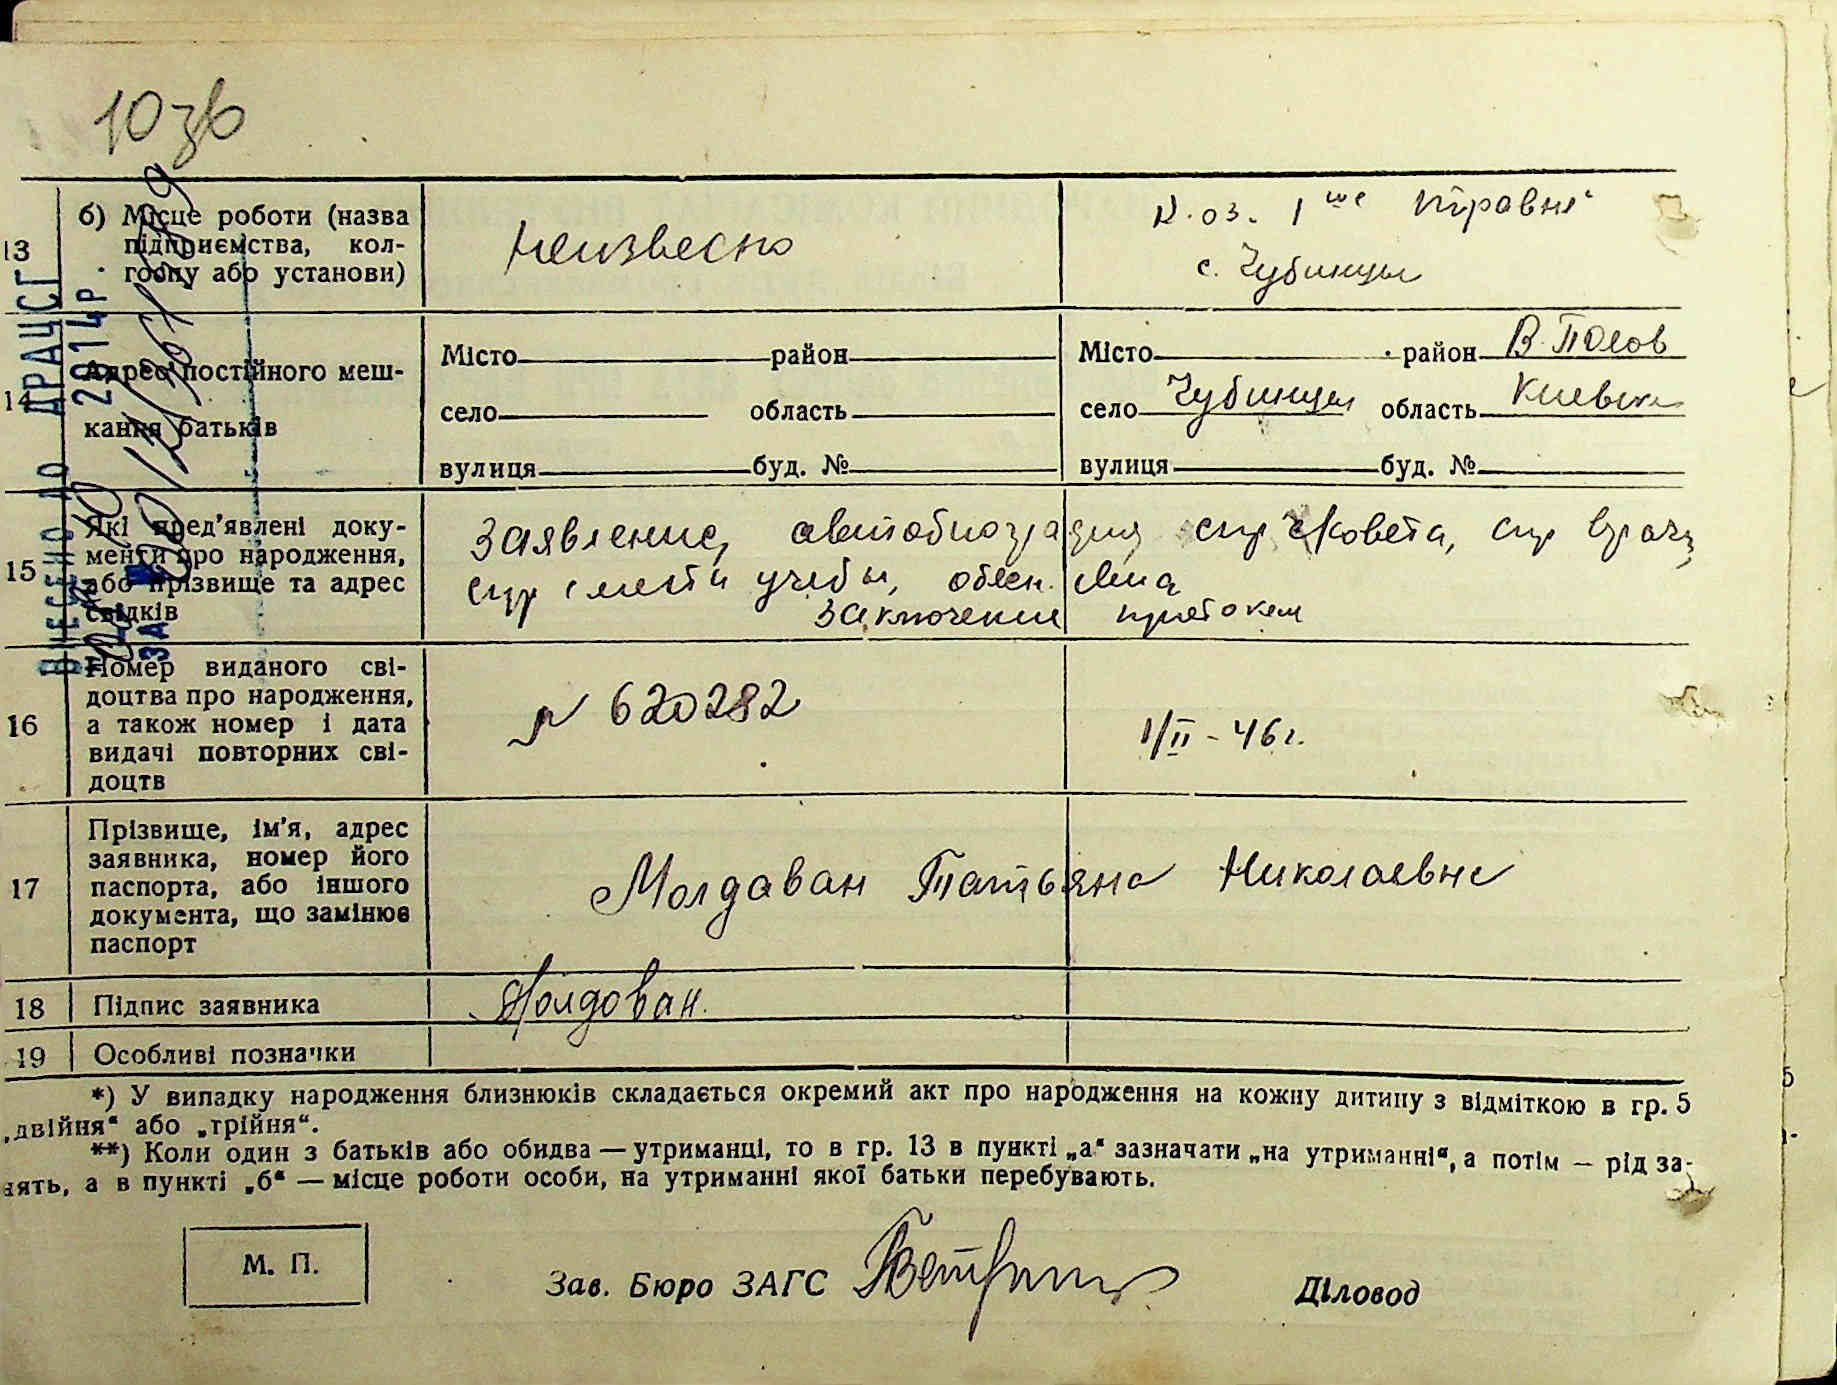 10 зв
13
б) Місце роботи (назва підприємства, колгоспу або установи)
неизвесно
к-оз. 1ше травня
с. Чубинцы
14
Адрес постійного мешкання батьків
Місто район
село область
вулиця буд. №
Місто район
село Чубинцы область Киевска
вулиця буд. №
15
Які пред'явлені документи про народження, або прізвище та адрес свідків
Заявление, автобиография спр с/совета, спр врача,
спр с места учебы,
заключение
16
Номер виданого свідоцтва про народження, а також номер і дата видачі повторних свідоцтв
№ 620282
1/II - 46 г.
17
Прізвище, ім'я, адрес заявника, номер його паспорта, або іншого документа, що замінює паспорт
Молдаван Татьяна Николаевна
18
Підпис заявника
Молдован.
19
Особливі позначки
*) У випадку народження близнюків складається окремий акт про народження на кожну дитину з відміткою в гр. 5
„двійня“ або „трійня“.
**) Коли один з батьків або обидва — утриманці, то в гр. 13 в пункті „а“ зазначати „на утриманні“, а потім — рід за-
нять, а в пункті „б“ — місце роботи особи, на утриманні якої батьки перебувають.
М. П.
Зав. Бюро ЗАГС
Діловод
ВНЕСЕНО ДО ДРАЦСГ
2014 р.
ЗА №